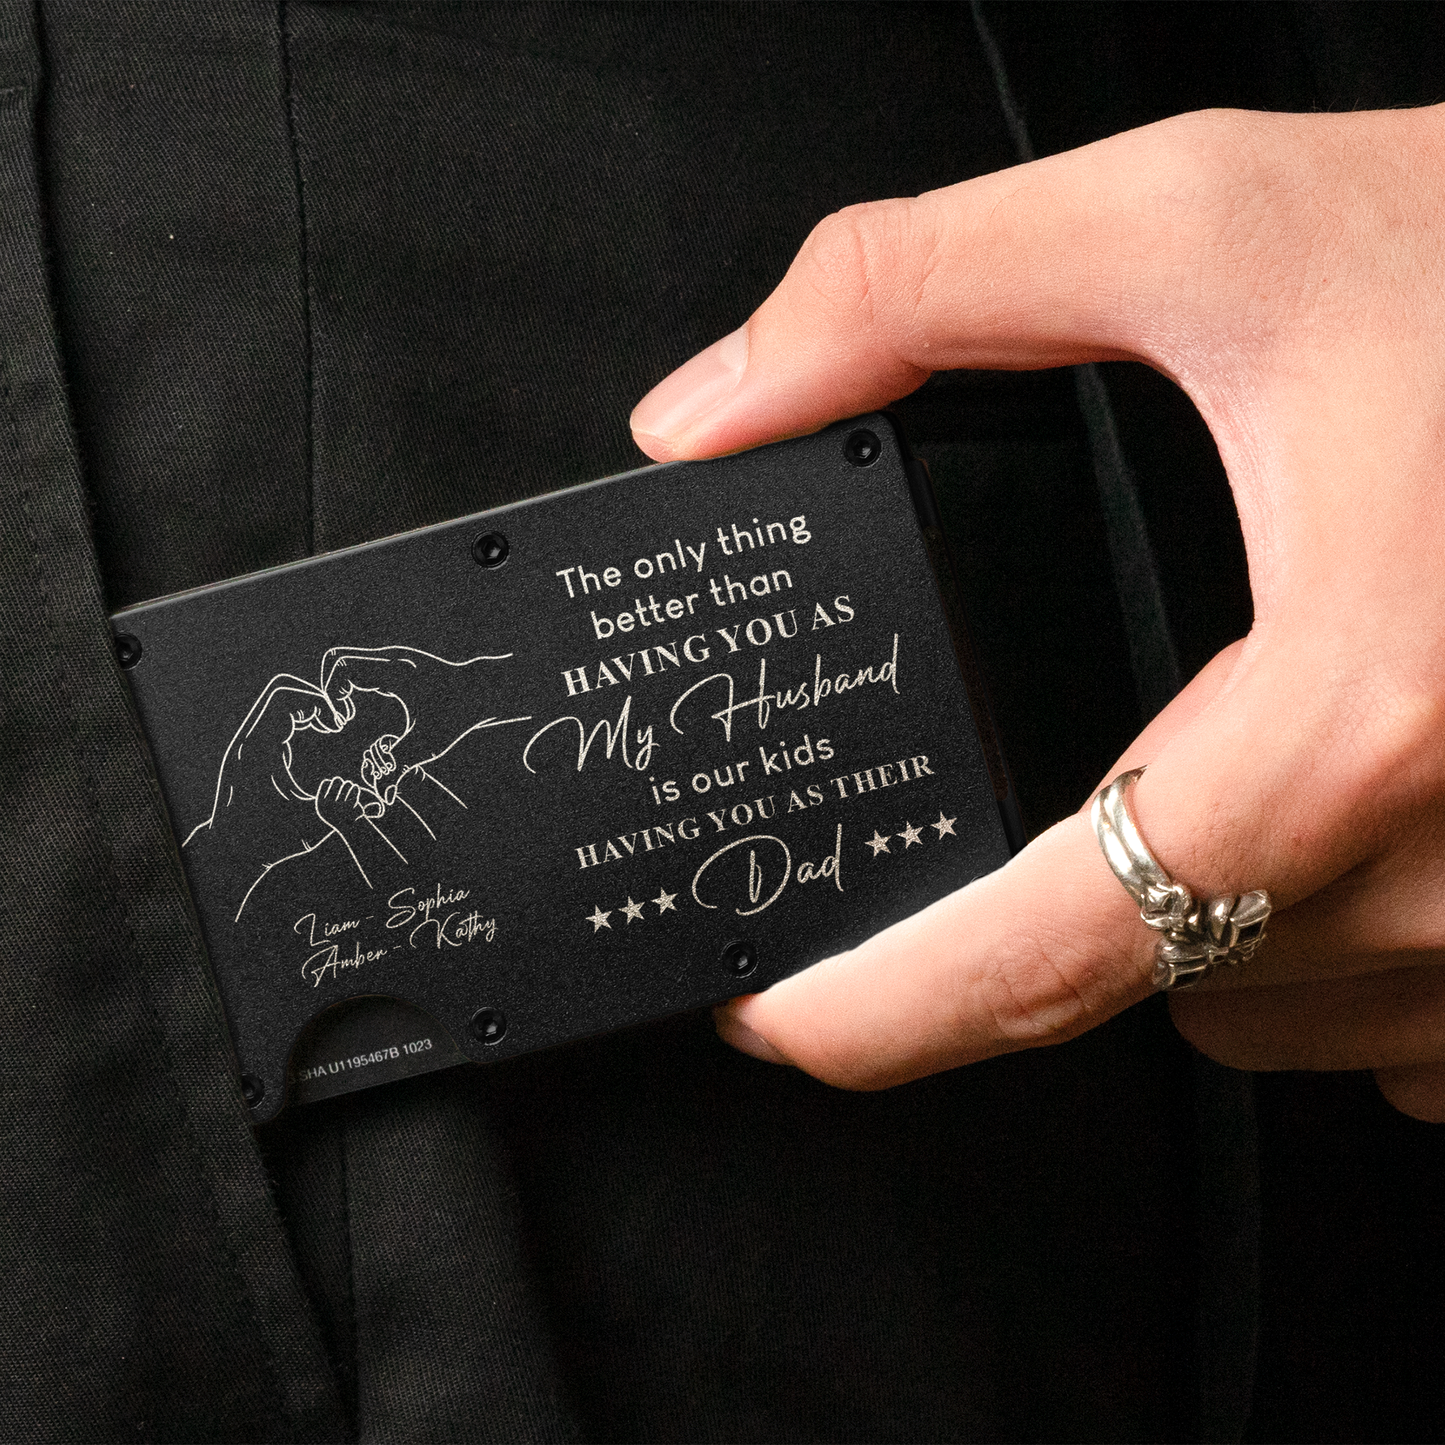 The only thing
better than
HAVING YOU AS
My Husband
is our kids
HAVING YOU AS THEIR
Dad
Liam - Sophia
Amber - Kathy
SHA U1195467B 1023